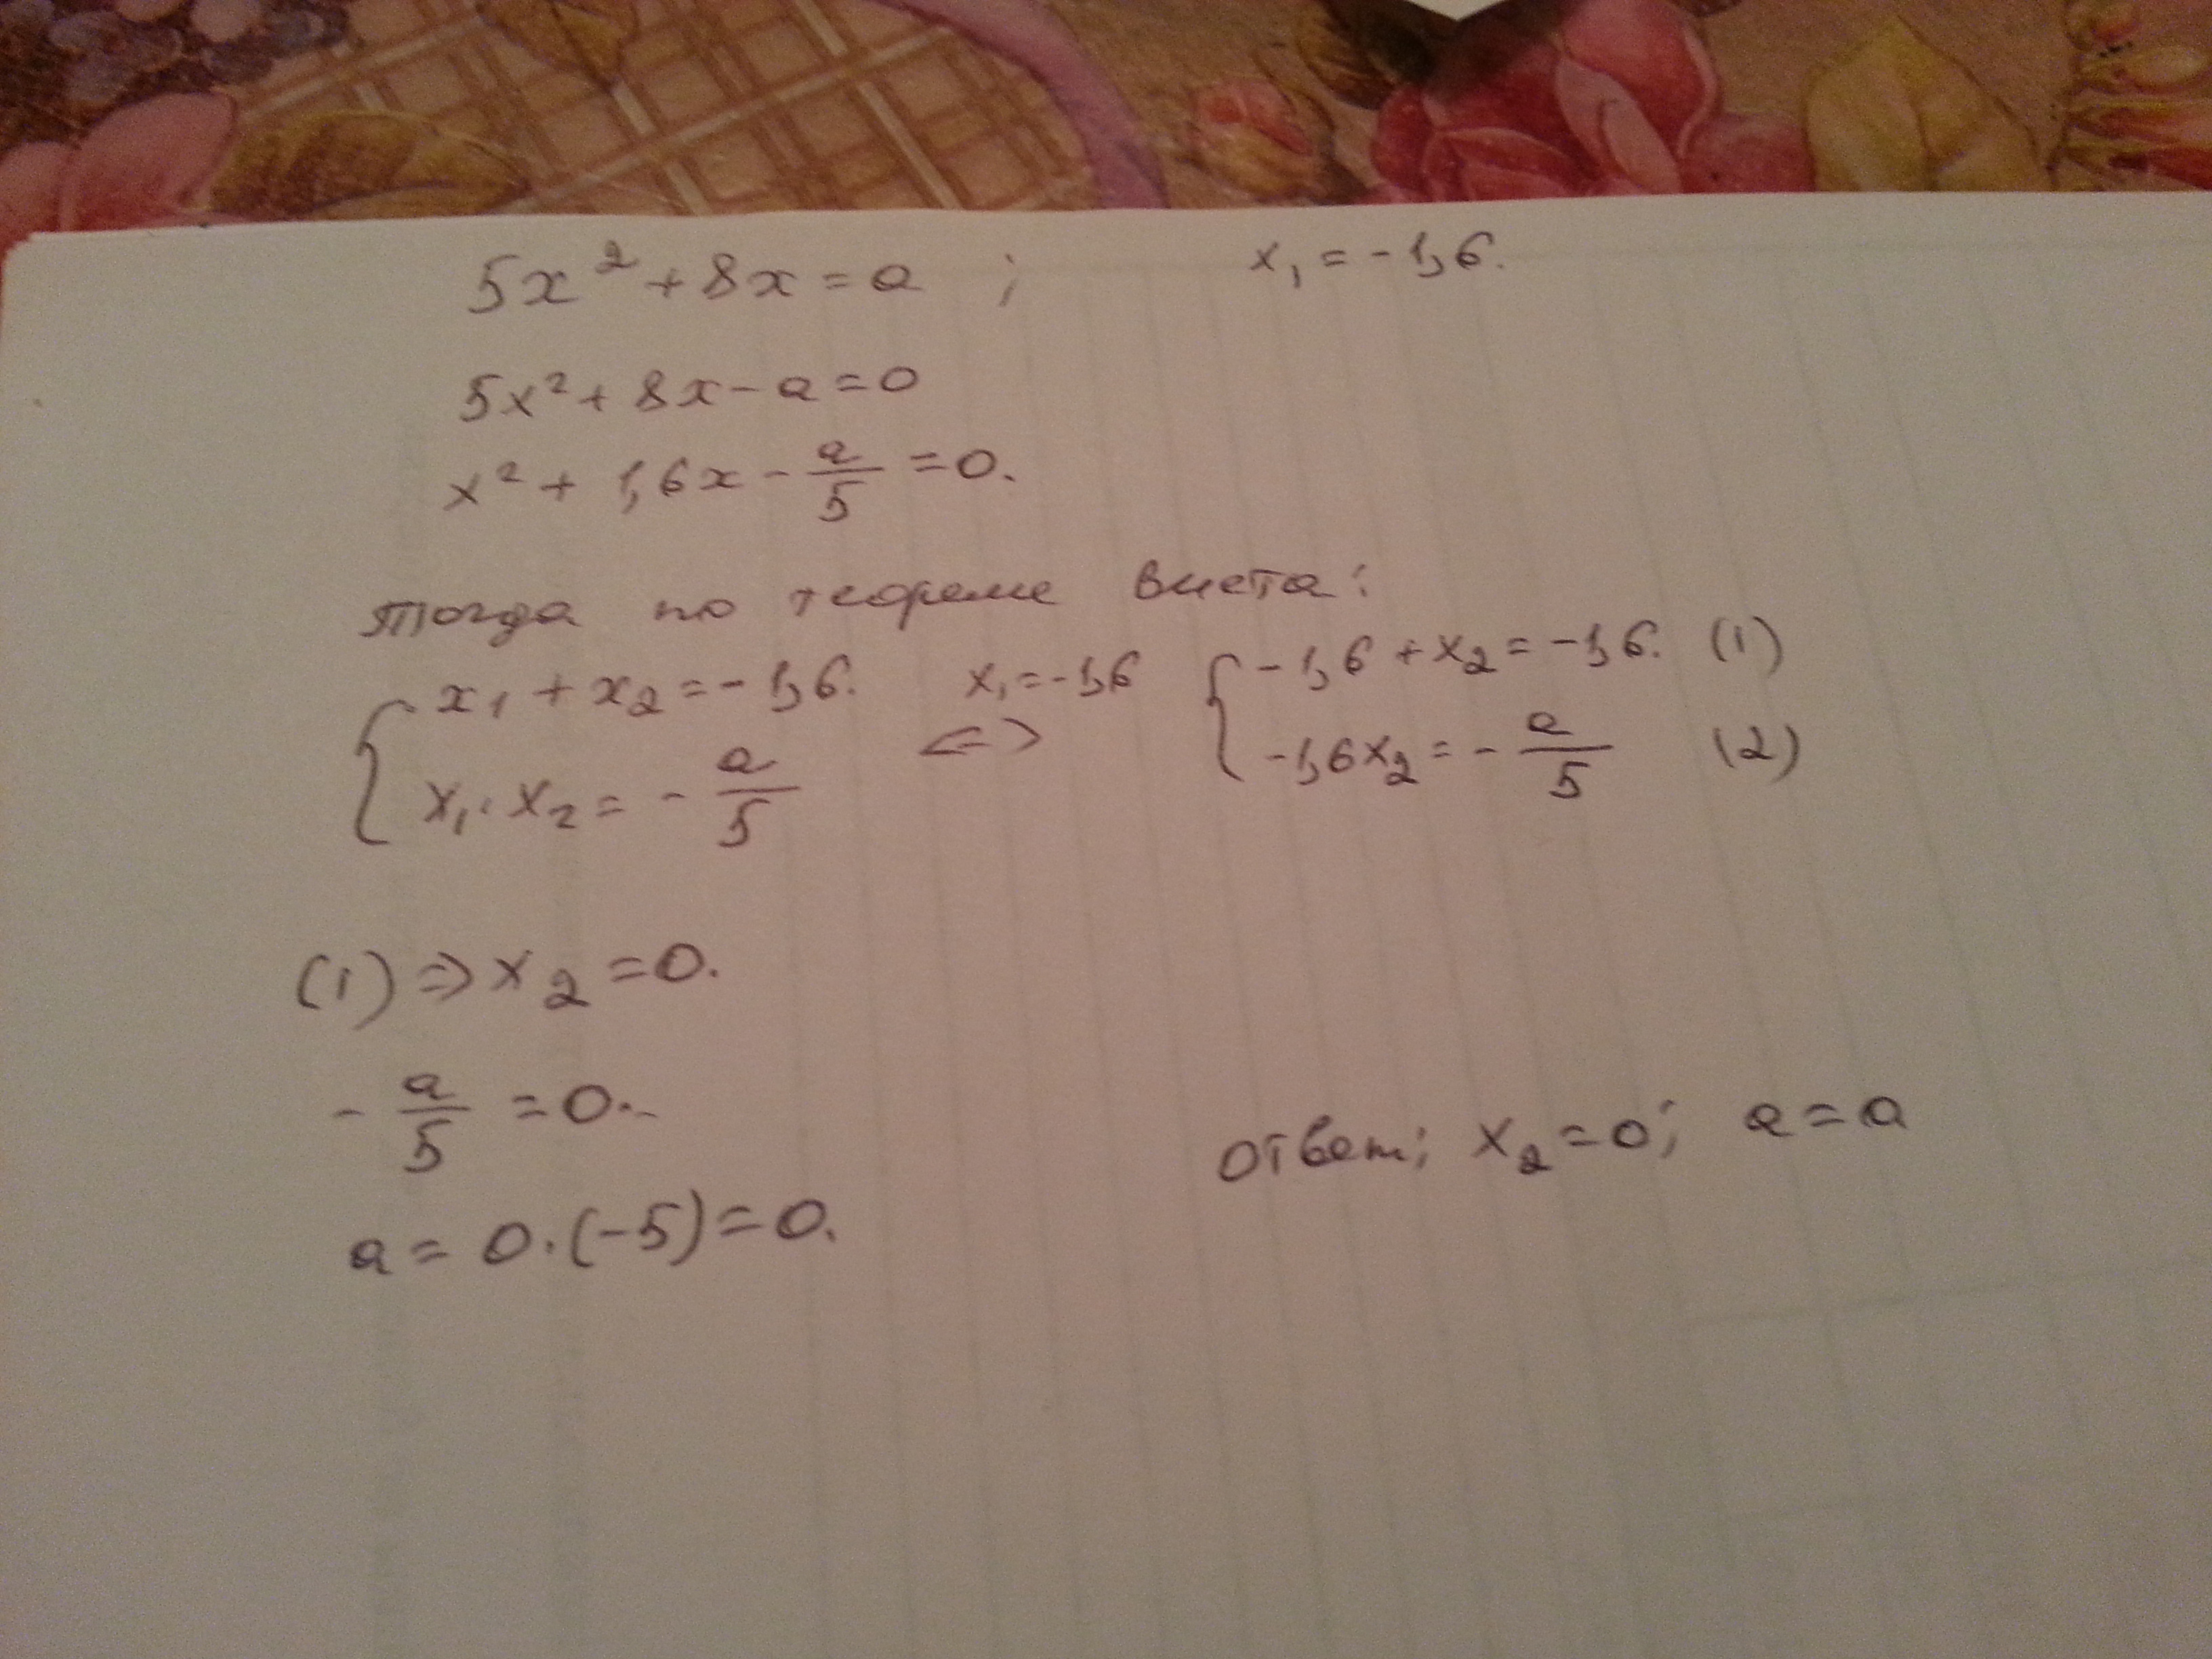 5x² + 8x = a ; x₁ = -1,6.
5x² + 8x - a = 0
x² + 1,6x - a/5 = 0.
тогда по теореме виета:
{ x₁ + x₂ = -1,6. x₁ = -1,6 { -1,6 + x₂ = -1,6. (1)
x₁ · x₂ = - a/5 <=> -1,6x₂ = - a/5 (2)
(1) => x₂ = 0.
- a/5 = 0.
ответ; x₂ = 0; a = a
a = 0·(-5) = 0.